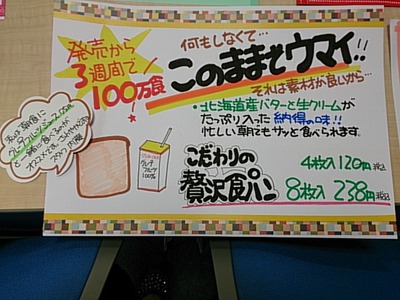 発売から
3週間で
100万食
何もしなくて…
このままでウマイ!!
それは素材が良いから…
・北海道産バターと生クリームが
たっぷり入った納得の味!!
忙しい朝でもサッと食べられます。
こだわりの
贅沢食パン
4枚入 120円 税込
8枚入 238円 税込
100%